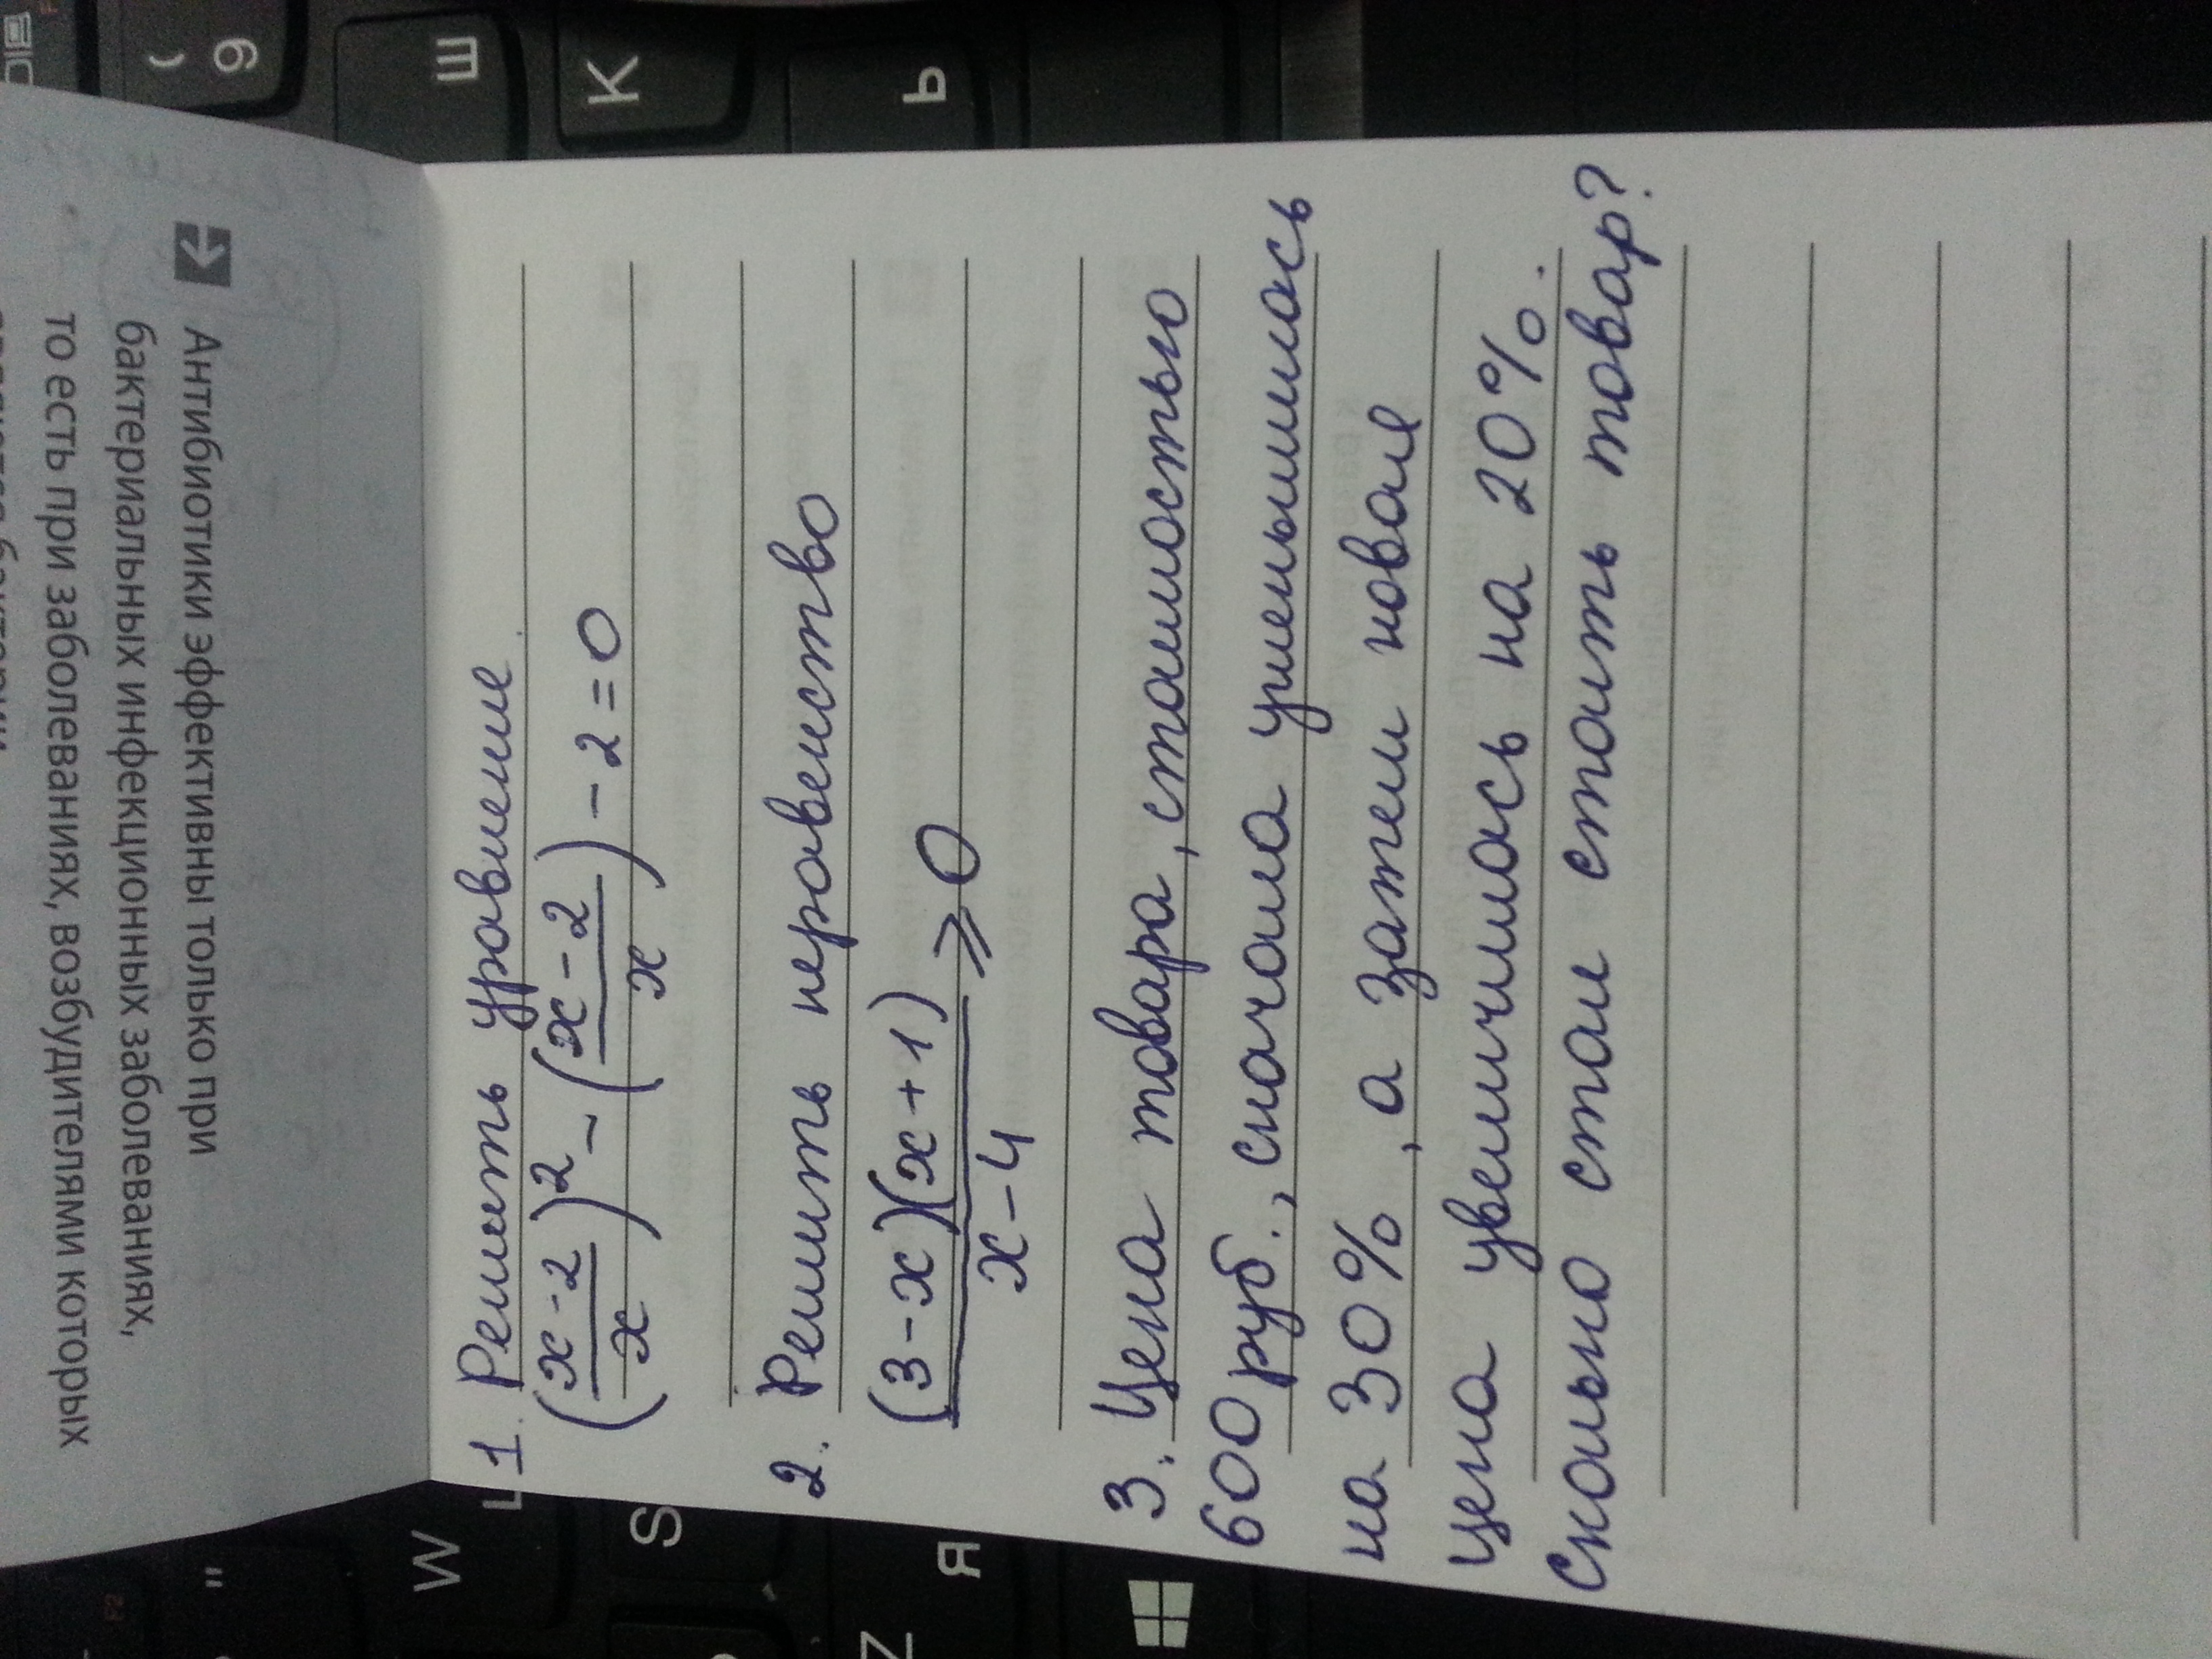 1. Решить уровнение
(x-2/x)² - (x-2/x) - 2 = 0
2. Решить неровенство
(3-x)(x+1)/x-4 ⩾ 0
3. Цена товара, стоимостью
600 руб., сначала уменьшилась
на 30%, а затем новая
цена увеличилась на 20%.
Сколько стал стоить товар?
Антибиотики эффективны только при
бактериальных инфекционных заболеваниях,
то есть при заболеваниях, возбудителями которых
W
S
Я
Z
"
F2
)
9
Ш
К
Ь